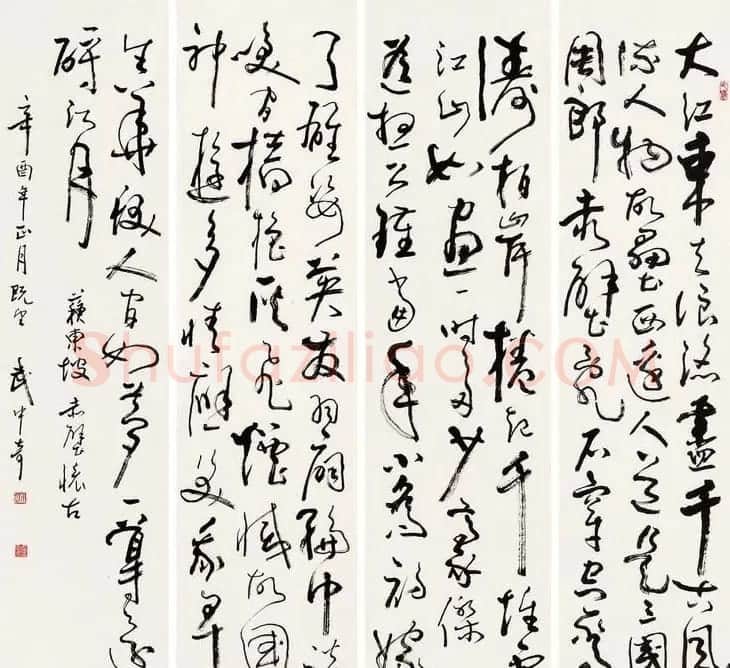 大江東去浪淘盡千古風
流人物故壘西邊人道是三國
周郎赤壁亂石穿空驚
濤拍岸捲起千堆雪
江山如畫一時多少豪傑
遙想公瑾當年小喬初嫁
了雄姿英發羽扇綸巾談
笑間檣櫓灰飛煙滅故國
神遊多情應笑我早
生華髮人間如夢一尊還
酹江月
蘇東坡赤壁懷古
辛酉年正月既望 武中奇
Shufaziliao.COM